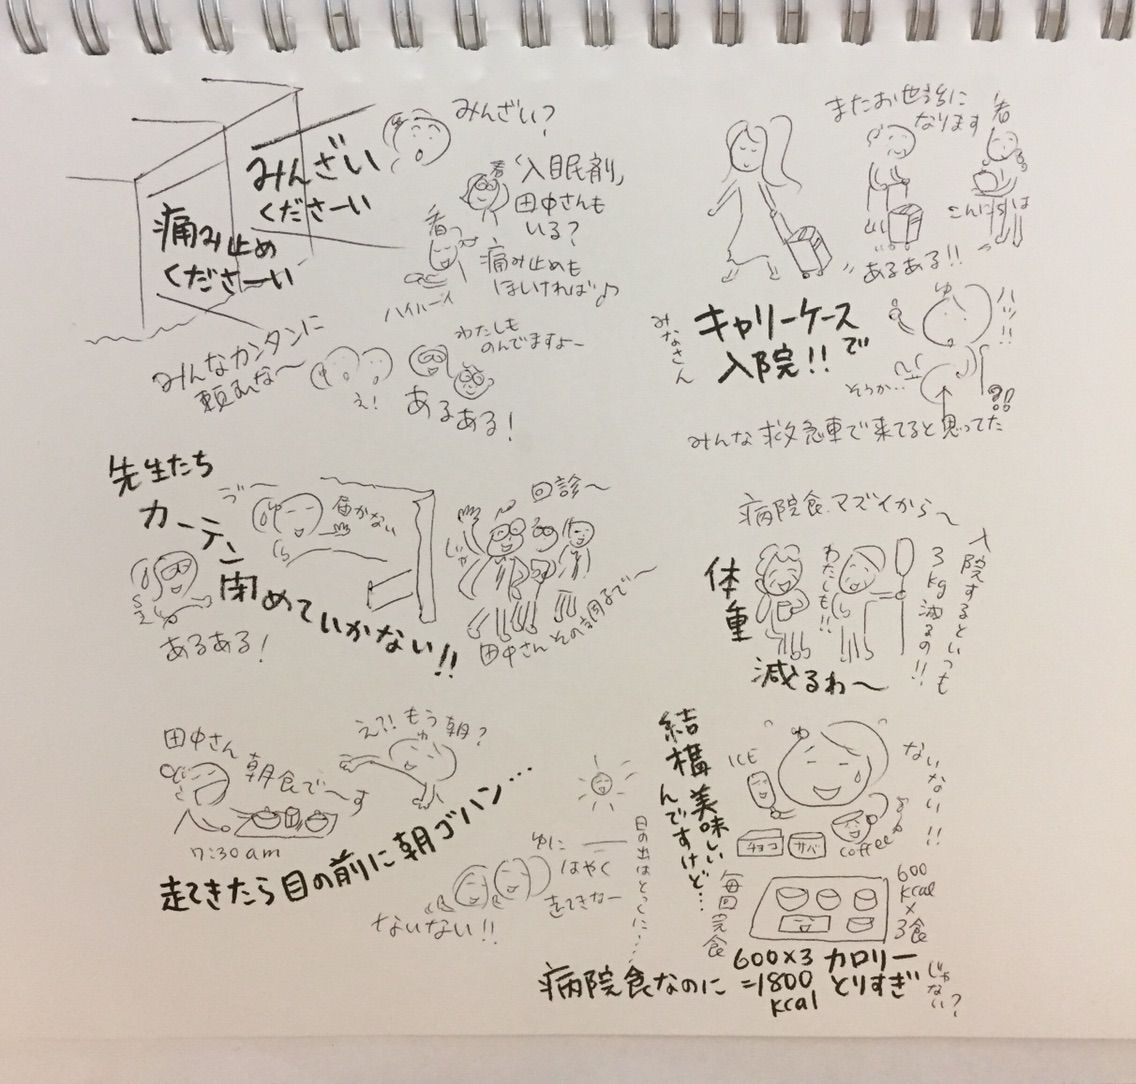 みんざい
くださーい
痛み止め
くださーい
みんざい?
看
「入眠剤」
田中さんも
いる?
看
痛み止めも
ほしければ♪
ハイハーイ
みんなカンタンに
頼むな〜
え!
わたしも
のんでますよー
あるある!
またお世話に
なります
看
こんにちは
あるある!!
みなさん
キャリーケース
で
入院!!
ゆ
ハッ!!
そうか…
?!!
みんな救急車で来てると思ってた
先生たち
カーテン
閉めていかない!!
届かない
あるある!
回診〜
じゃ
田中さんその調子で〜
病院食マズイから〜
体重
減るわ〜
わたしも!!
入院するといつも
3kg減るの!!
田中さん
朝食で〜す
7:30am
えっ!もう朝?
ゆ
起きたら目の前に朝ゴハン…
ないない!!
ゆに
はやく
起きなー
日の出はとっくに…
結構美味しい
んですけど…
ないない!!
ICE
チョコ
サバ
coffee
毎回完食
600
kcal
×
3食
病院食なのに
600×3
=1800
kcal
カロリー
とりすぎ
じゃない?